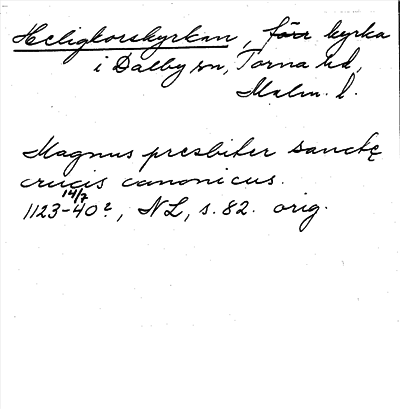 Heligkorskyrkan, förr kyrka
i Dalby sn, Torna hd,
Malm. l.
Magnus presbiter sanctę
crucis canonicus.
14/7
1123-40?, NL, s. 82. orig.